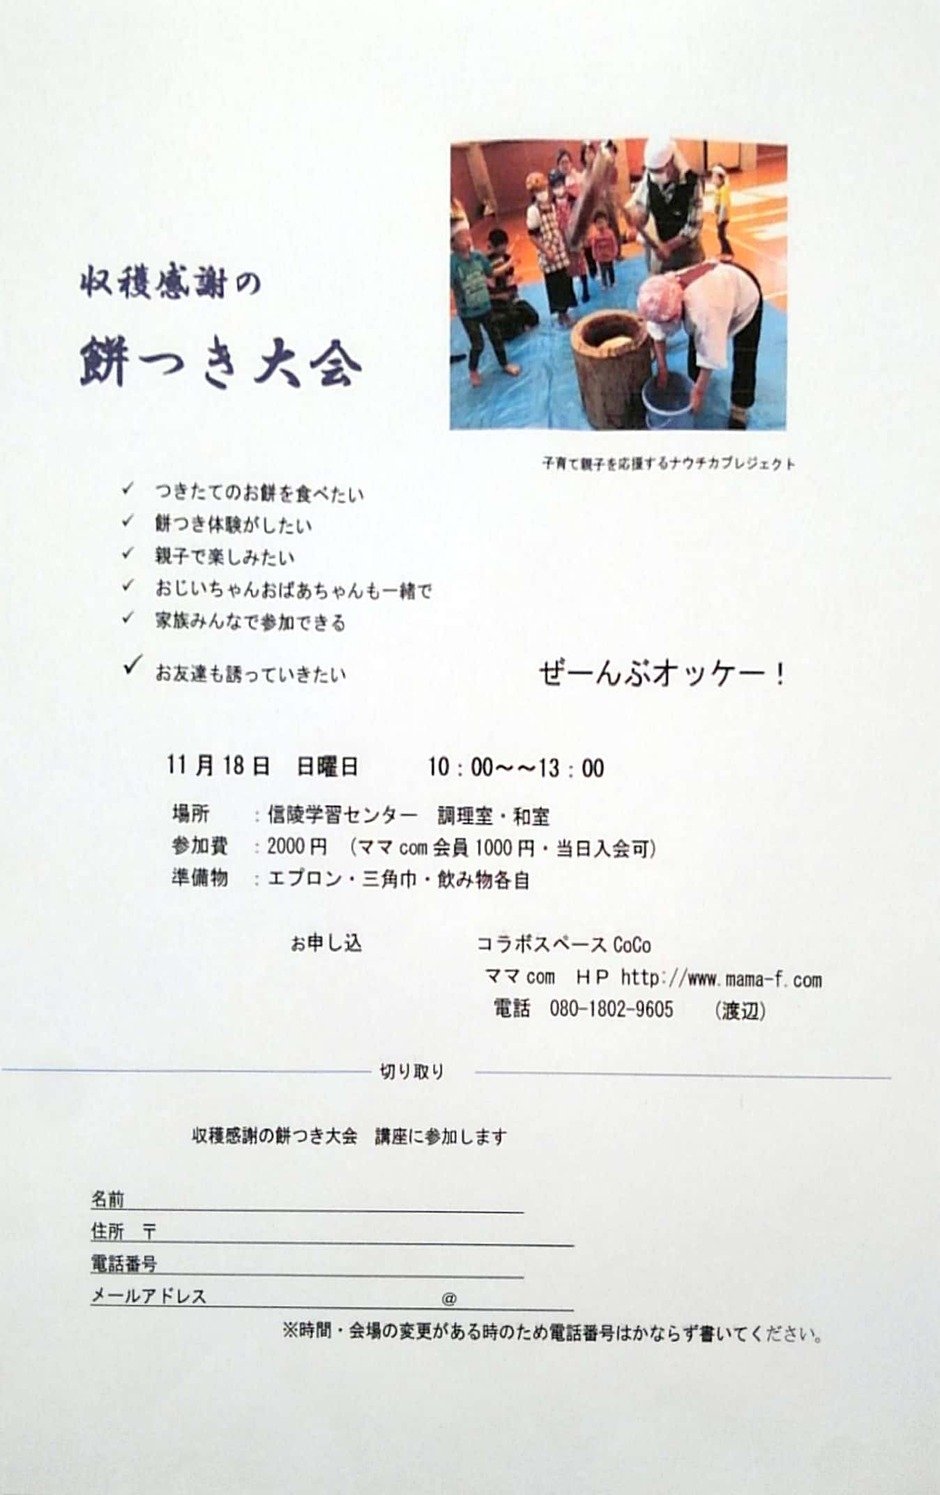 収穫感謝の
餅つき大会
子育て親子を応援するナウチカプレジェクト
✓ つきたてのお餅を食べたい
✓ 餅つき体験がしたい
✓ 親子で楽しみたい
✓ おじいちゃんおばあちゃんも一緒で
✓ 家族みんなで参加できる
✓ お友達も誘っていきたい ぜーんぶオッケー！
11月18日 日曜日 10：00～～13：00
場所 ：信陵学習センター 調理室・和室
参加費 ：2000円 （ママcom会員1000円・当日入会可）
準備物 ：エプロン・三角巾・飲み物各自
お申し込 コラボスペースCoCo
ママcom ＨＰ http://www.mama-f.com
電話 080-1802-9605 （渡辺）
切り取り
収穫感謝の餅つき大会 講座に参加します
名前
住所 〒
電話番号
メールアドレス ＠
※時間・会場の変更がある時のため電話番号はかならず書いてください。